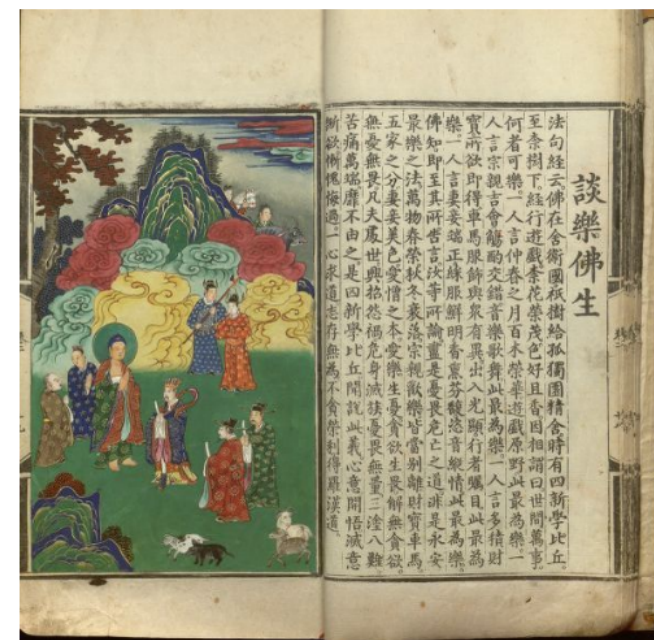 談樂佛生
法句經云佛在舍衛國祇樹給孤獨園精舍時有四新學比丘
至柰樹下經行遊戲柰花榮茂色好且香因相謂曰世間萬事
何者可樂一人言仲春之月百木榮華遊戲原野此最為樂一
人言宗親吉會觴酌交錯音樂歌舞此最為樂一人言多積財
寶所欲即得車馬服飾與眾有異出入光顯行者矚目此最為
樂一人言妻妾端正綵服鮮明香熏芬馥恣音縱情此最為樂
佛知即至其所告言汝等所論盡是憂畏危亡之道非是永安
最樂之法萬物春榮秋冬衰落宗親歡樂皆當別離財寶車馬
五家之分妻妾美色愛憎之本愛樂生憂貪欲生畏解無貪欲
無憂無畏凡夫處世興招怨禍危身滅族憂畏無量三塗八難
苦痛萬端靡不由之是四新學比丘聞說此義心意開悟滅意
斷欲慚愧悔過一心求道志存無為不貪榮利得羅漢道